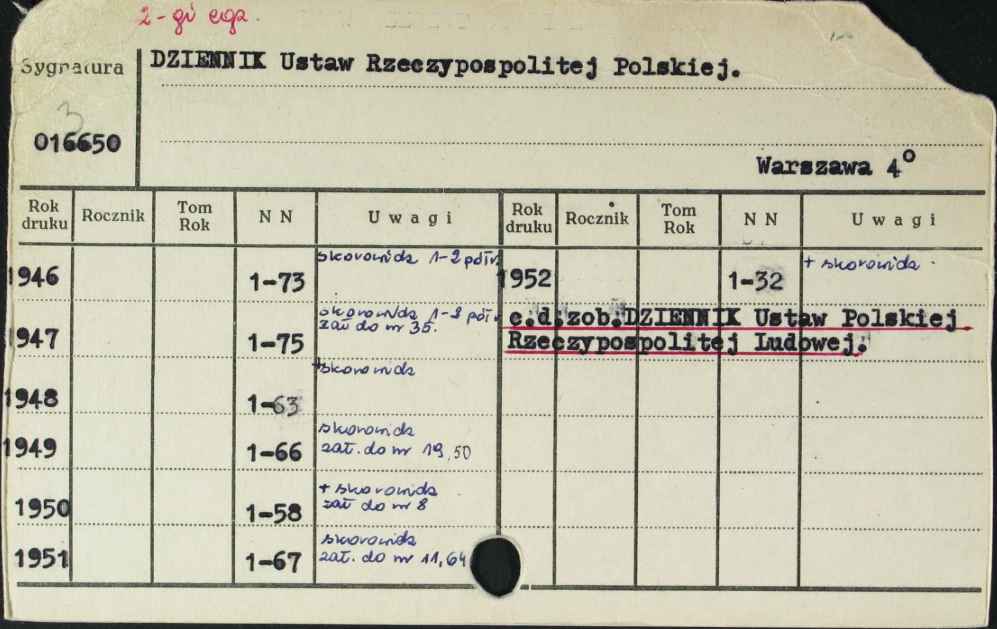 2-gi egz.
Sygnatura
DZIENNIK Ustaw Rzeczypospolitej Polskiej.
3
016650
Warszawa 4°
Rok druku Rocznik Tom Rok N N Uwagi Rok druku Rocznik Tom Rok N N Uwagi
1946 1-73 skorowidz 1-2 półr.
1952 1-32 + skorowidz
1947 1-75 skorowidz 1-2 półr.
zał do nr 35.
c.d.zob.DZIENNIK Ustaw Polskiej
Rzeczypospolitej Ludowej.
1948 1-63 +skorowidz
1949 1-66 skorowidz
zał. do nr 19, 50
1950 1-58 + skorowidz
zał do nr 8
1951 1-67 skorowidz
zał. do nr 11, 64